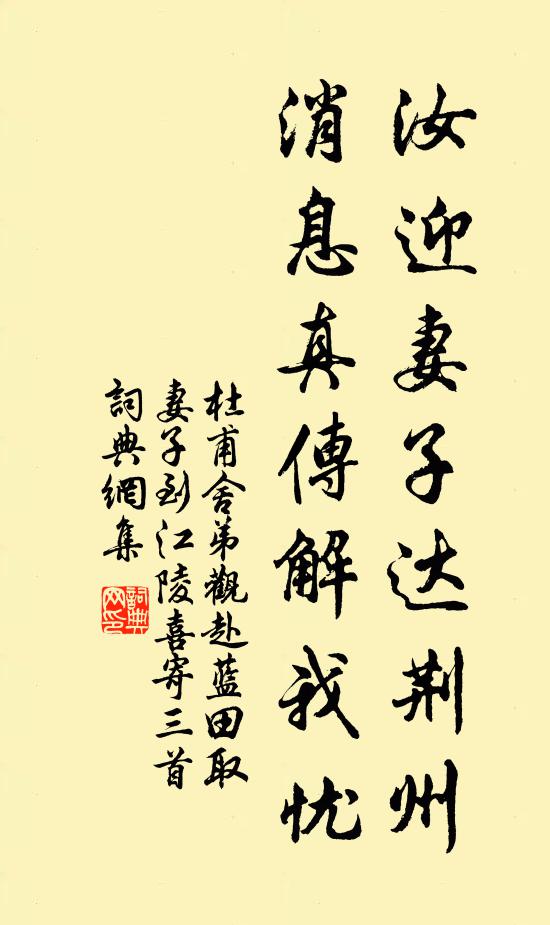 汝迎妻子达荆州
消息真傳解我忧
杜甫舍弟觀赴蓝田取
妻子到江陵喜寄三首
詞典網集
詞典网印